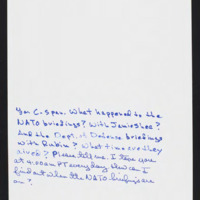 You C-span. What happened to the
NATO briefings? With Jamie Shea?
And the Dept. of Defense briefings
with Rubin? What time are they
aired? Please tell me. I tape you
at 4:00am PT everyday. How can I
find out when the NATO briefings are
on?